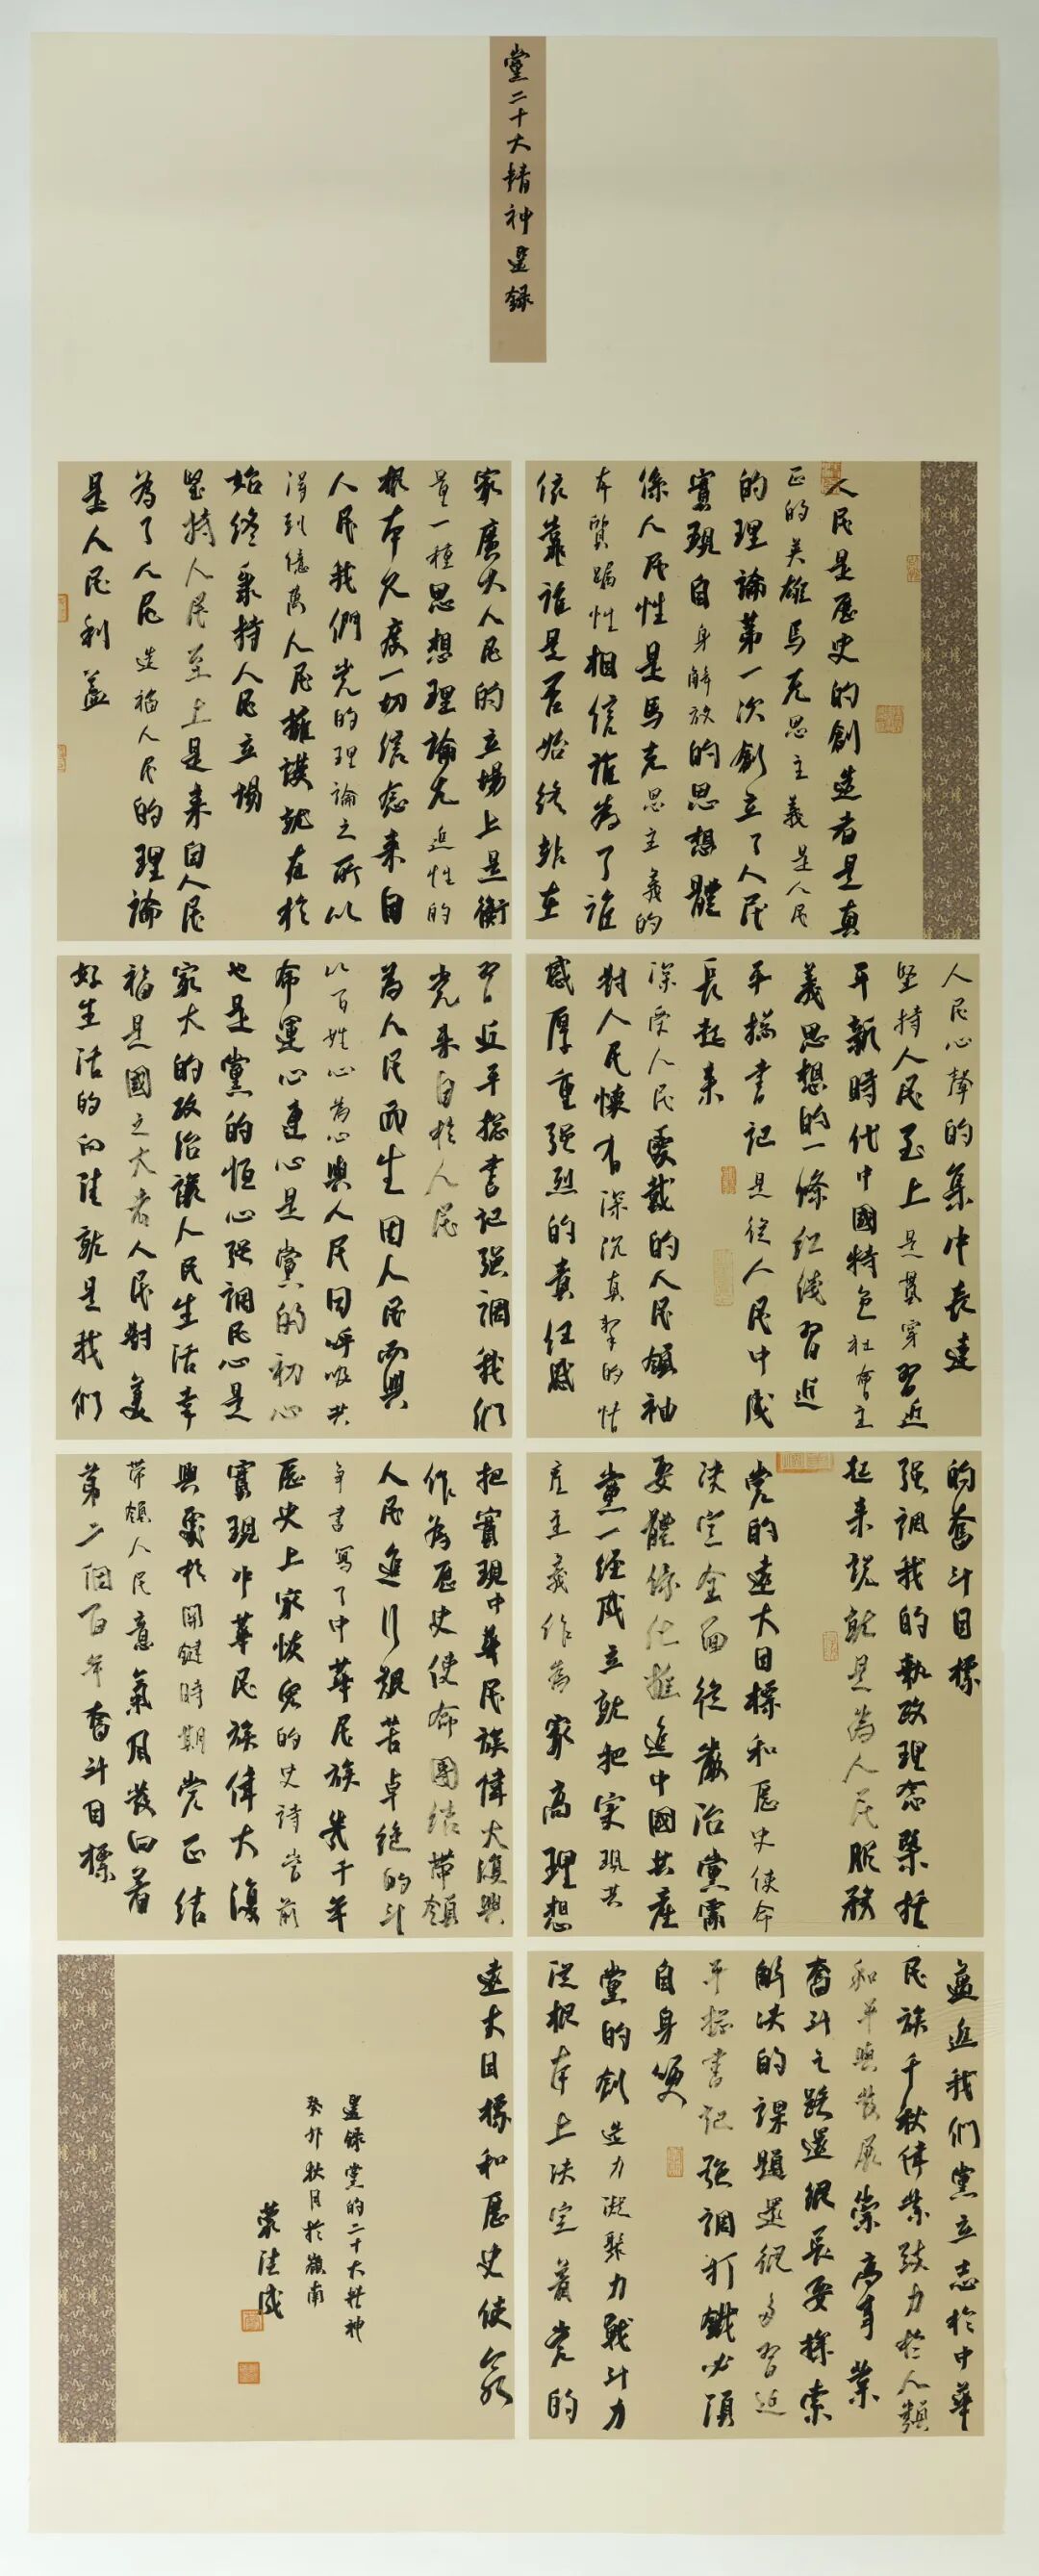 堂二十大精神選録
人民是歷史的創造者是真
正的英雄馬克思主義是人民
的理論第一次創立了人民
實現自身解放的思想體
係人民性是馬克思主義的
本質屬性相信誰為了誰
依靠誰是否始終站在
家廣大人民的立場上是衡
量一種思想理論先進性的
根本尺度一切信念来自
人民我們党的理論之所以
得到億萬人民擁護就在於
始終秉持人民立場
堅持人民至上是来自人民
為了人民造福人民的理論
是人民利益
人民心聲的集中表達
坚持人民至上是貫穿習近
平新時代中國特色社會主
義思想的一條红线習近
平總書記是從人民中成
長起来
深受人民愛戴的人民領袖
對人民懷有深沉真摯的情
感厚重强烈的責任感
習近平總書記强調我們
党来自於人民
為人民而生因人民而興
以百姓心為心與人民同呼吸共
命運心連心是黨的初心
也是黨的恒心强調民心是
家大的政治讓人民生活幸
福是國之大者人民對美
好生活的向往就是我們
的奮斗目標
强調我的執政理念槩括
起来說就是為人民服務
党的遠大目標和歷史使命
决定全面從嚴治黨需
要體係化推進中國共産
黨一經成立就把实現共
産主義作為家高理想
把實現中華民族偉大復興
作為歷史使命團结帶領
人民進行艱苦卓绝的斗
争書寫了中華民族幾千年
歷史上家恢宏的史詩當前
實現中華民族偉大復
興處於關鍵時期党正结
帶領人民意氣風發向着
第二個百年奮斗目標
邁近我們黨立志於中華
民族千秋偉業致力於人類
和平與發展崇高事業
奮斗之路還很長要探索
解决的課題還很多習近
平總書記强調打鐵必須
自身硬
黨的創造力凝聚力戰斗力
從根本上决定着党的
遠大目標和歷史使命
選録堂的二十大精神
癸卯秋月於嶺南